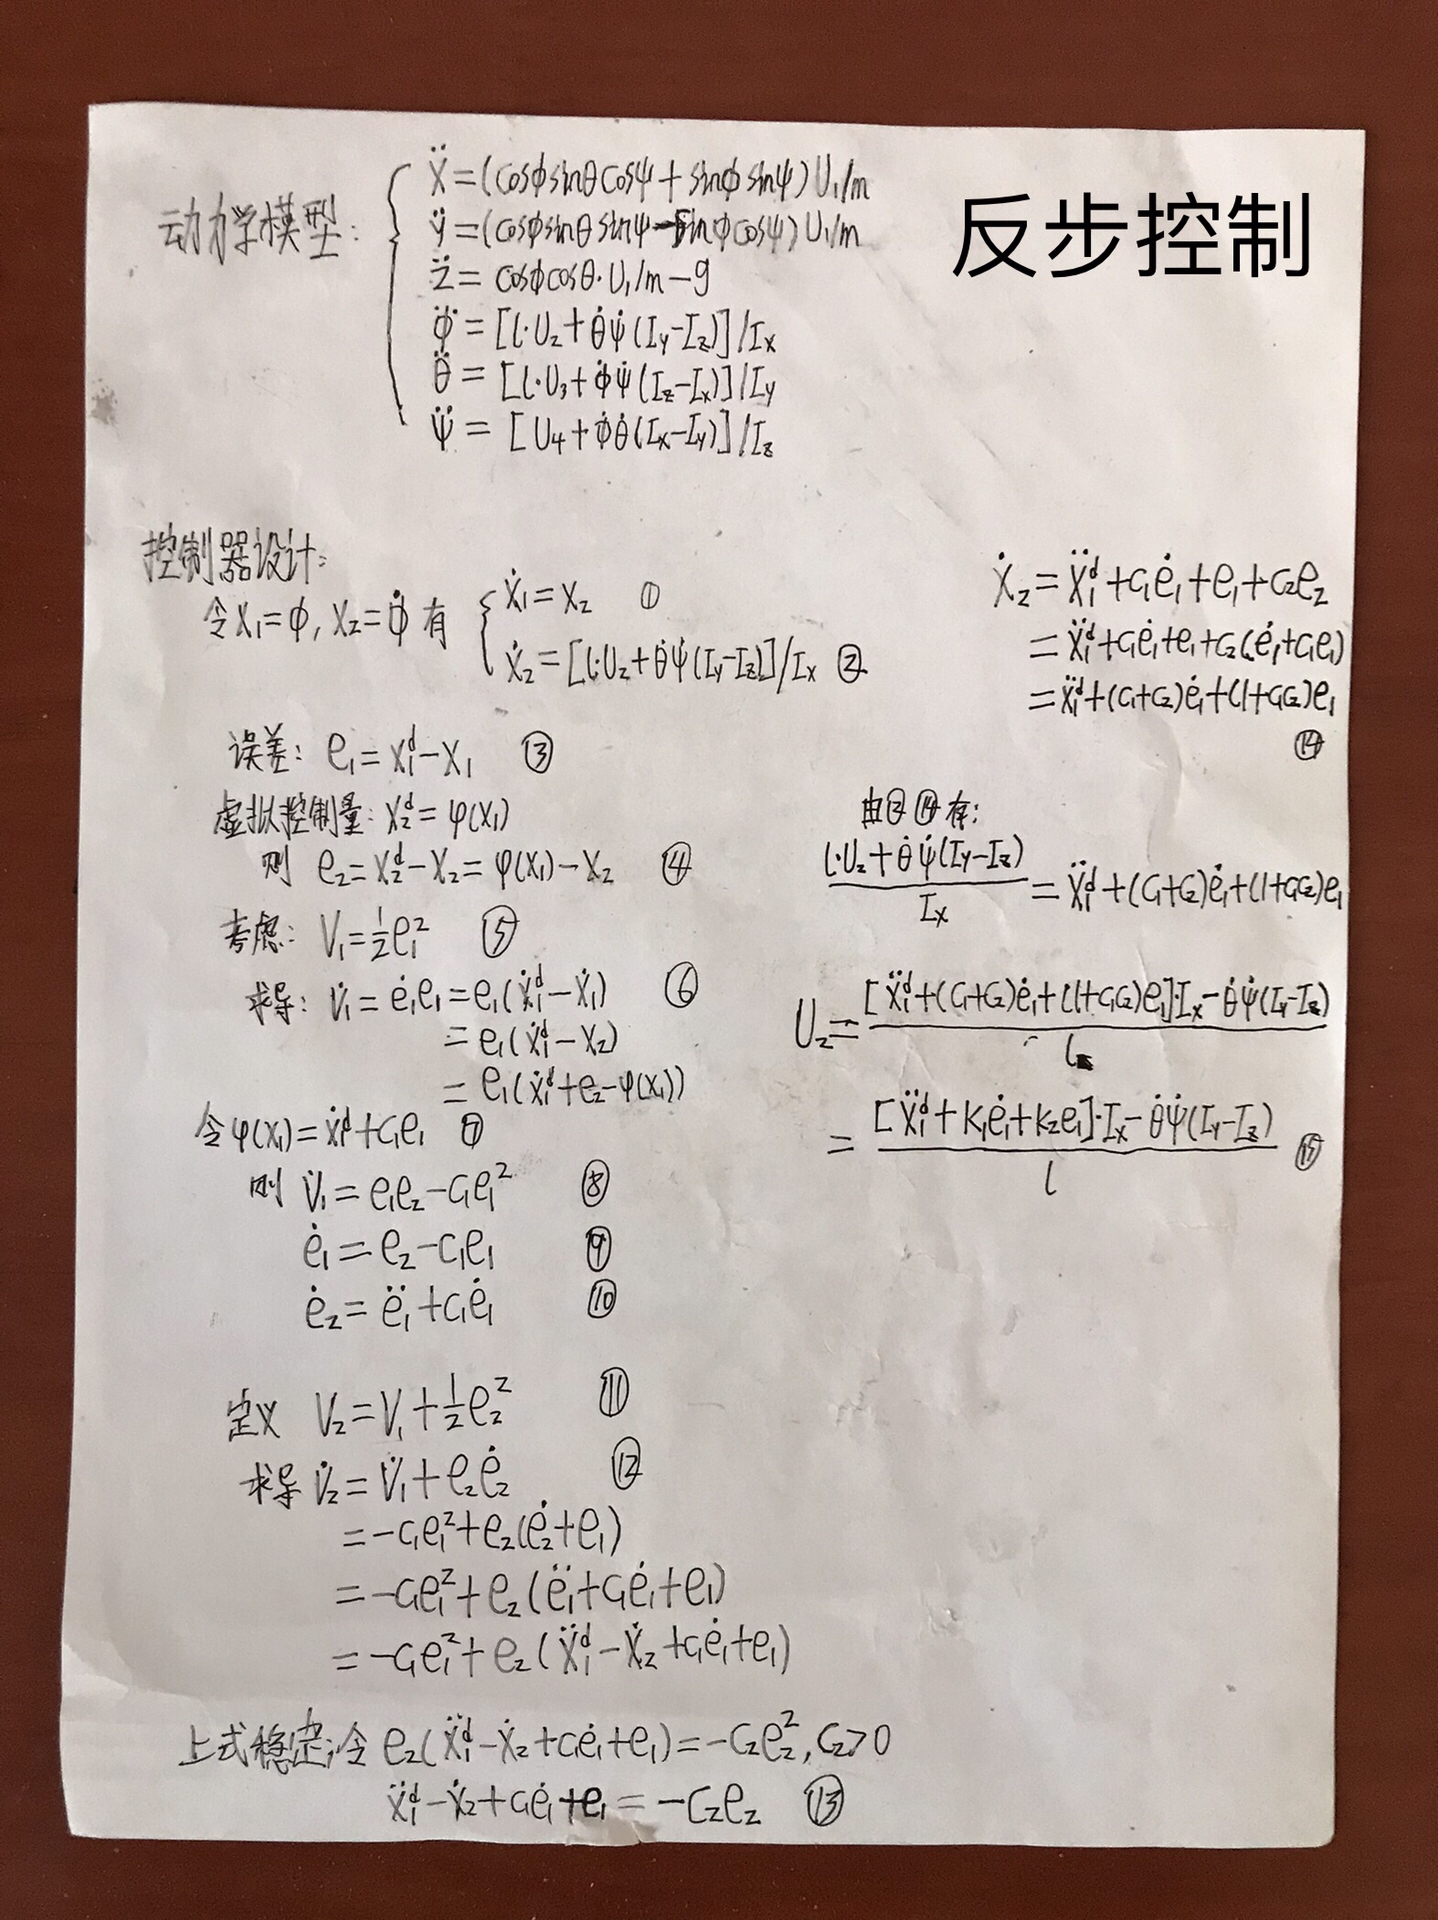 反步控制
动力学模型:
ẍ=(cosϕsinθcosψ+sinϕsinψ)U₁/m
ÿ=(cosϕsinθsinψ-sinϕcosψ)U₁/m
z̈=cosϕcosθ·U₁/m-g
ϕ̈=[l·U₂+θ̇ψ̇(I_y-I_z)]/I_x
θ̈=[l·U₃+ϕ̇ψ̇(I_z-I_x)]/I_y
ψ̈=[U₄+ϕ̇θ̇(I_x-I_y)]/I_z
控制器设计:
令x₁=ϕ, x₂=ϕ̇ 有
ẋ₁=x₂ ①
ẋ₂=[l·U₂+θ̇ψ̇(I_y-I_z)]/I_x ②
误差: e₁=x₁ᵈ-x₁ ③
虚拟控制量: x₂ᵈ=φ(x₁)
则 e₂=x₂ᵈ-x₂=φ(x₁)-x₂ ④
考虑: V₁=½e₁² ⑤
求导: V̇₁=ė₁e₁=e₁(ẋ₁ᵈ-ẋ₁) ⑥
=e₁(ẋ₁ᵈ-x₂)
=e₁(ẋ₁ᵈ+e₂-φ(x₁))
令φ(x₁)=ẋ₁ᵈ+c₁e₁ ⑦
则 V̇₁=e₁e₂-c₁e₁² ⑧
ė₁=e₂-c₁e₁ ⑨
ė₂=ë₁+c₁ė₁ ⑩
定义 V₂=V₁+½e₂² ⑪
求导 V̇₂=V̇₁+e₂ė₂ ⑫
=-c₁e₁²+e₂(ė₂+e₁)
=-c₁e₁²+e₂(ë₁+c₁ė₁+e₁)
=-c₁e₁²+e₂(ẍ₁ᵈ-ẋ₂+c₁ė₁+e₁)
上式稳定,令 e₂(ẍ₁ᵈ-ẋ₂+c₁ė₁+e₁)=-c₂e₂², c₂>0
ẍ₁ᵈ-ẋ₂+c₁ė₁+e₁=-c₂e₂ ⑬
ẋ₂=ẍ₁ᵈ+c₁ė₁+e₁+c₂e₂
=ẍ₁ᵈ+c₁ė₁+e₁+c₂(ė₁+c₁e₁)
=ẍ₁ᵈ+(c₁+c₂)ė₁+(1+c₁c₂)e₁
⑭
由②⑭有:
(l·U₂+θ̇ψ̇(I_y-I_z))/I_x=ẍ₁ᵈ+(c₁+c₂)ė₁+(1+c₁c₂)e₁
U₂=([ẍ₁ᵈ+(c₁+c₂)ė₁+(1+c₁c₂)e₁]·I_x-θ̇ψ̇(I_y-I_z))/l
=([ẍ₁ᵈ+k₁ė₁+k₂e₁]·I_x-θ̇ψ̇(I_y-I_z))/l ⑮